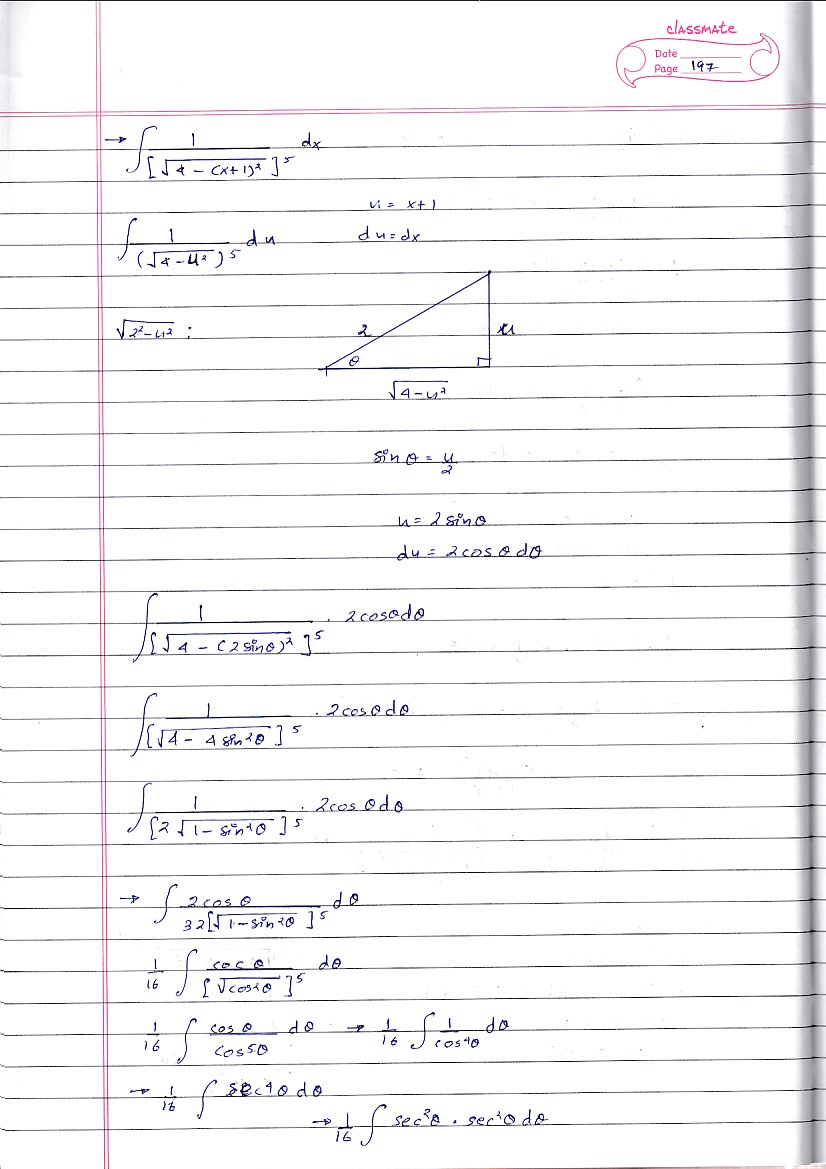 classmate
Date
Page 197
→ ∫ 1 / [√4 - (x+1)²]⁵ dx
u = x+1
∫ 1 / (√4-u²)⁵ du
du = dx
√2²-u² :
2
u
θ
√4-u²
sin θ = u/2
u = 2 sin θ
du = 2 cos θ dθ
∫ 1 / [√4 - (2 sin θ)²]⁵ . 2 cos θ dθ
∫ 1 / [√4 - 4 sin²θ]⁵ . 2 cos θ dθ
∫ 1 / [2 √1 - sin²θ]⁵ . 2 cos θ dθ
→ ∫ 2 cos θ / 32[√1 - sin²θ]⁵ dθ
1/16 ∫ coc θ / [√cos²θ]⁵ dθ
1/16 ∫ cos θ / cos⁵θ dθ → 1/16 ∫ 1 / cos⁴θ dθ
→ 1/16 ∫ sec⁴θ dθ
→ 1/16 ∫ sec²θ . sec²θ dθ